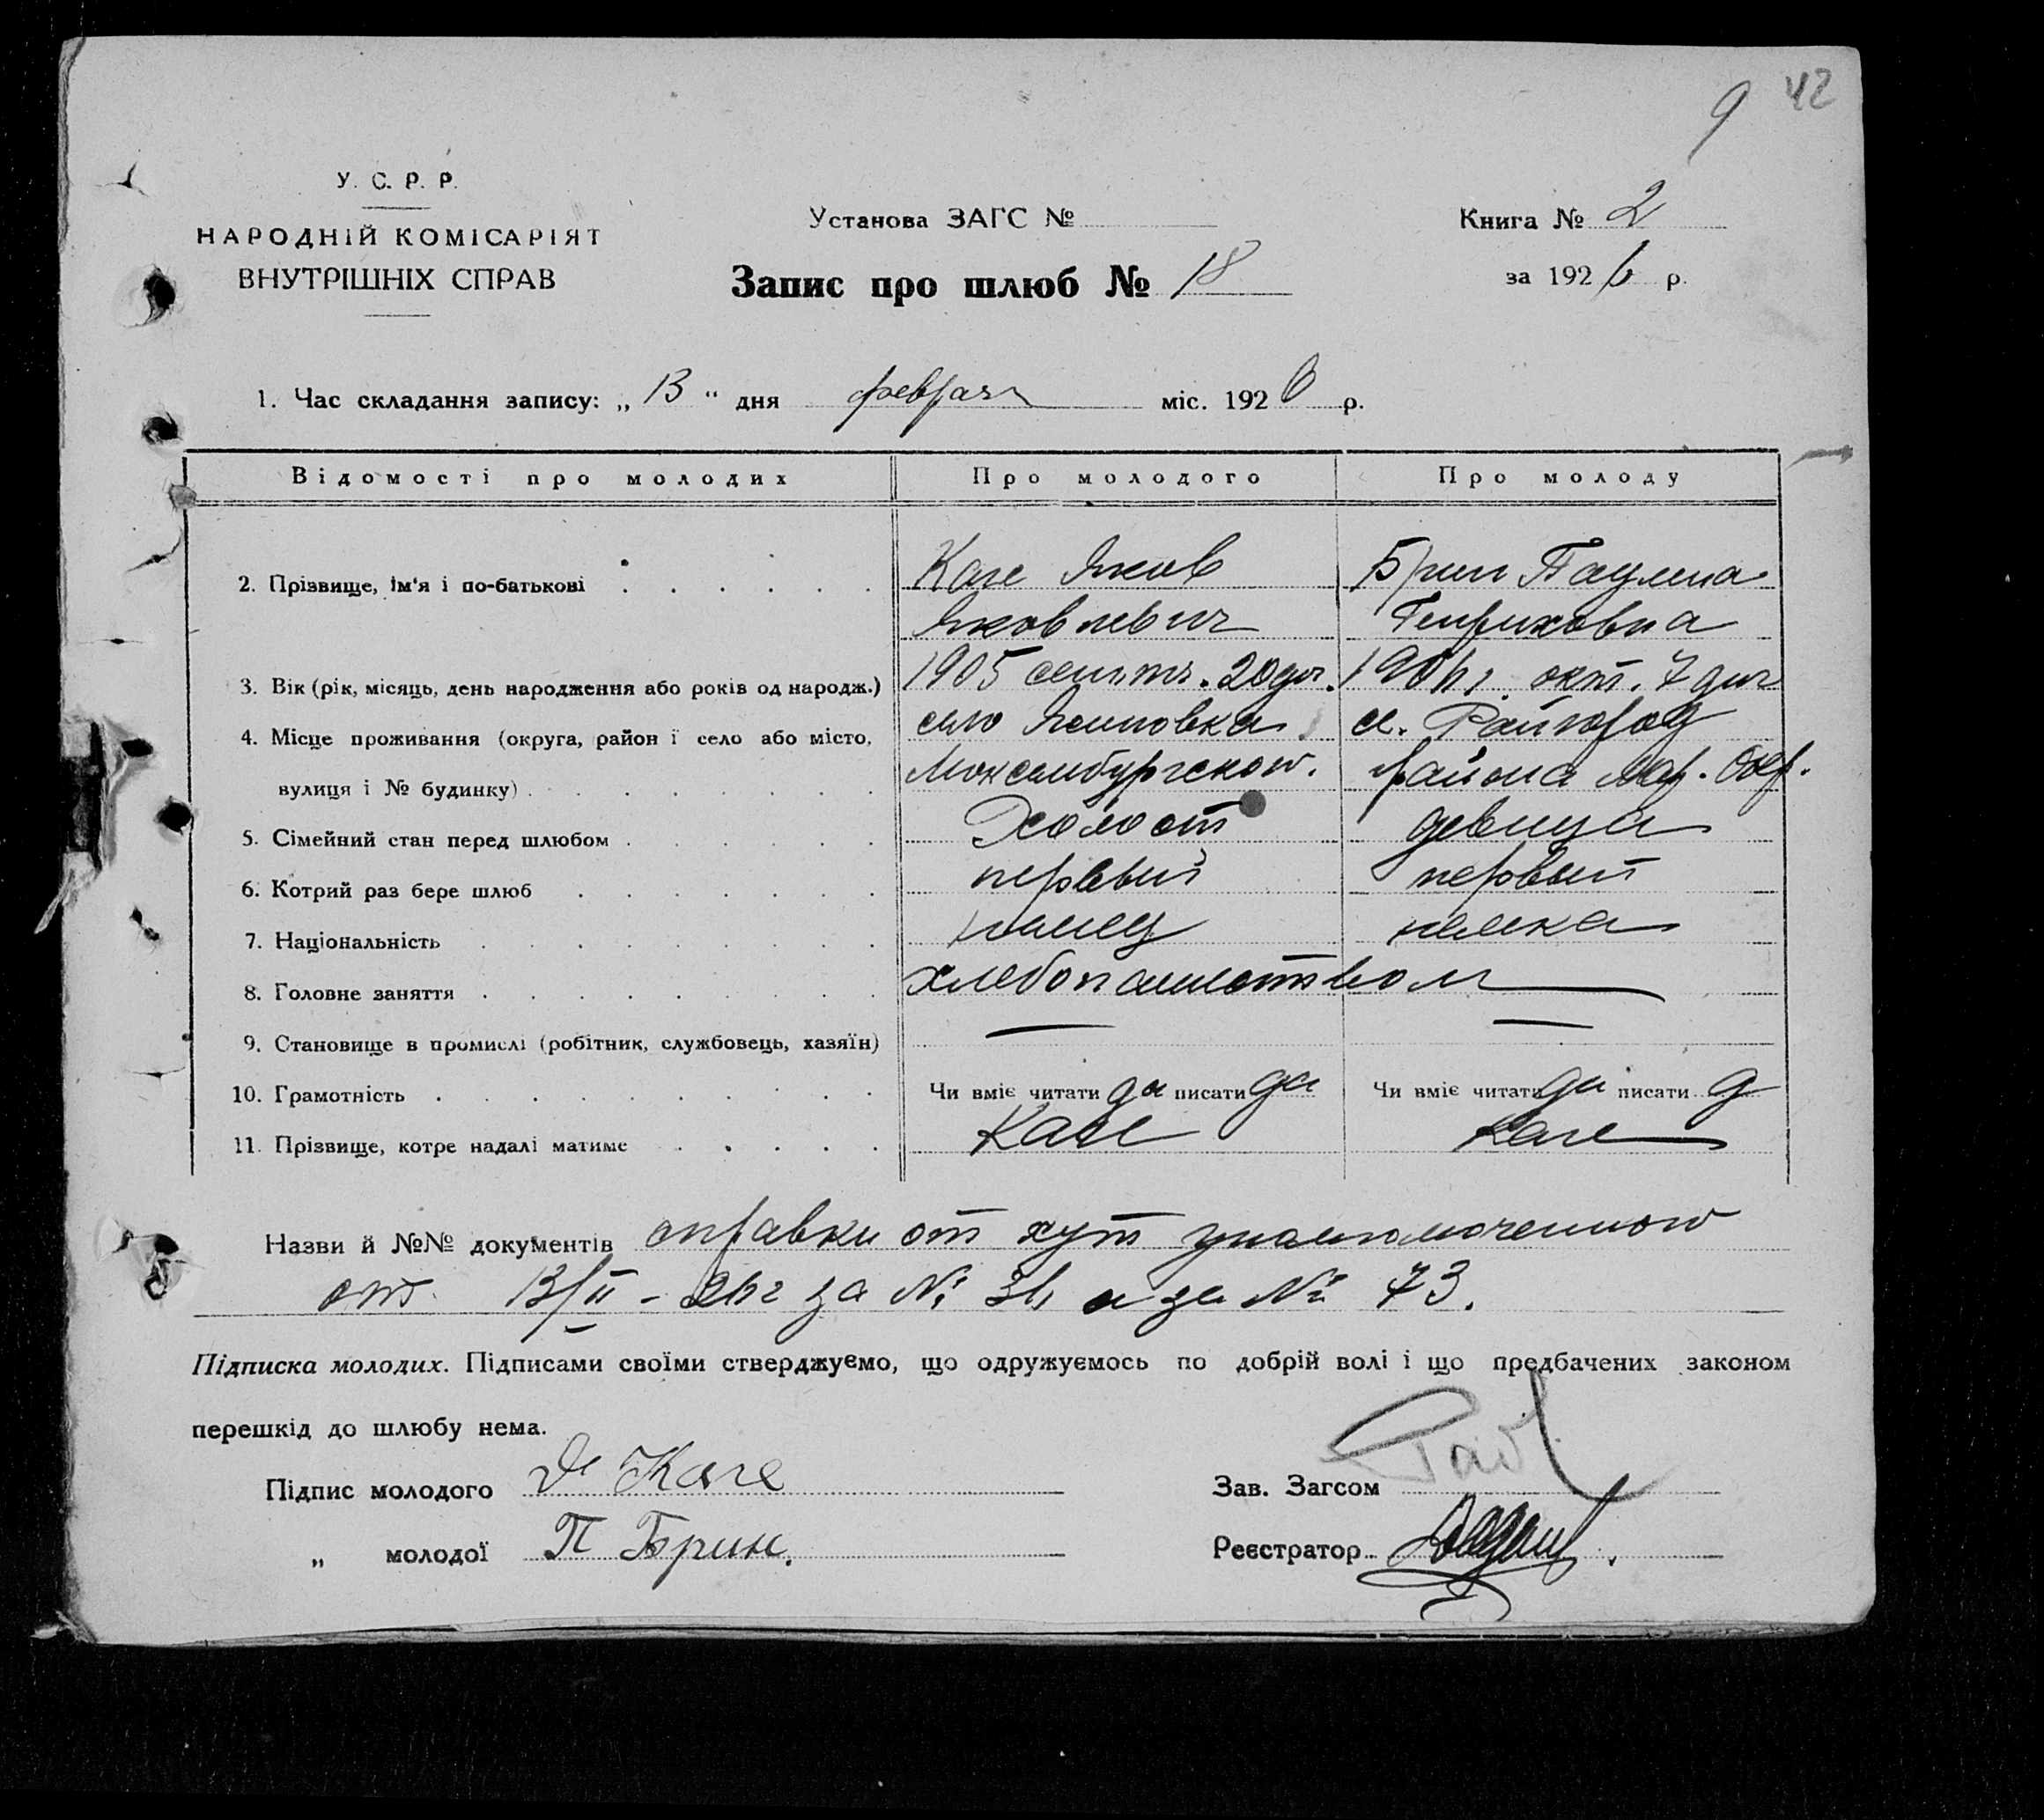 9 42
У. С. Р. Р.
НАРОДНІЙ КОМІСАРІЯТ
ВНУТРІШНІХ СПРАВ
Установа ЗАГС №
Книга № 2
Запис про шлюб № 18
за 1926 р.
1. Час складання запису: „ 13 “ дня февраля міс. 1926 р.
Відомості про молодих Про молодого Про молоду
2. Прізвище, ім'я і по-батькові Яков Брин Паулина
Яковлевич Генриховна
3. Вік (рік, місяць, день народження або років од народж.) 1905 сент. 20 дн. 1906 г. окт. 7 дня
4. Місце проживання (округа, район і село або місто, село с. Райгород
вулиця і № будинку) Люксембургского. района Мар. Окр.
5. Сімейний стан перед шлюбом Холост девица
6. Котрий раз бере шлюб первый первый
7. Національність немец немка
8. Головне заняття хлебопашеством
9. Становище в промислі (робітник, службовець, хазяїн) — —
10. Грамотність Чи вміє читати да писати да Чи вміє читати да писати д
11. Прізвище, котре надалі матиме
Назви й №№ документів справки от хут уполномоченного
от 13/II - 26 г за № и за № 73.
Підписка молодих. Підписами своїми стверджуємо, що одружуємось по добрій волі і що предбачених законом
перешкід до шлюбу нема.
Підпис молодого
Зав. Загсом
„ молодої П Брин.
Реєстратор